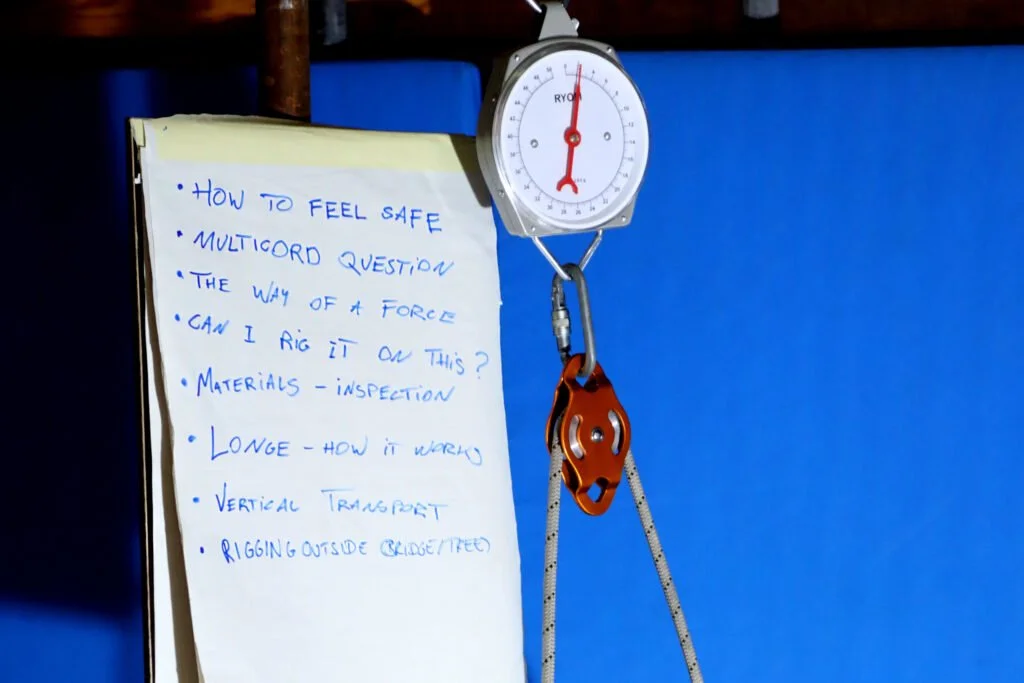 • HOW TO FEEL SAFE
• MULTICORD QUESTION
• THE WAY OF A FORCE
• CAN I RIG IT ON THIS?
• MATERIALS - INSPECTION
• LONGE - HOW IT WORKS
• VERTICAL TRANSPORT
• RIGGING OUTSIDE (BRIDGE/TREE)